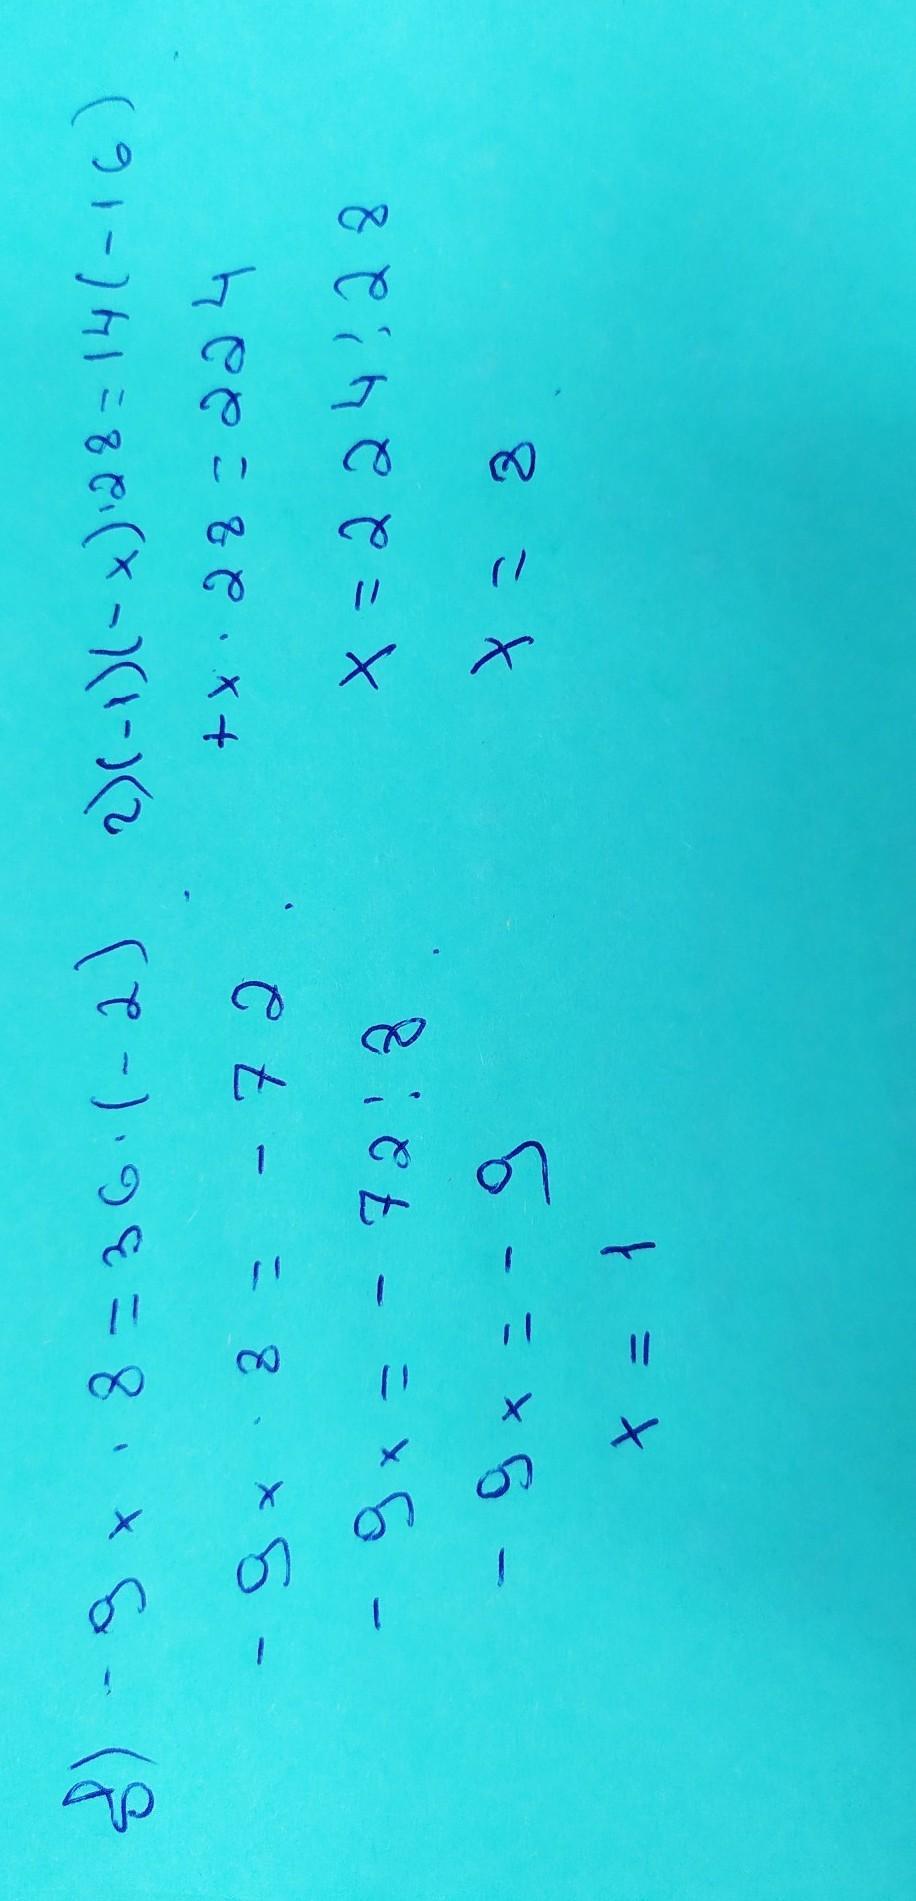 д) -9x · 8 = 36 · (-2)
-9x · 8 = -72
-9x = -72 : 8
-9x = -9
x = 1
г) (-1)(-x)·28 = 14(-16)
+x · 28 = 224
x = 224 : 28
x = 8